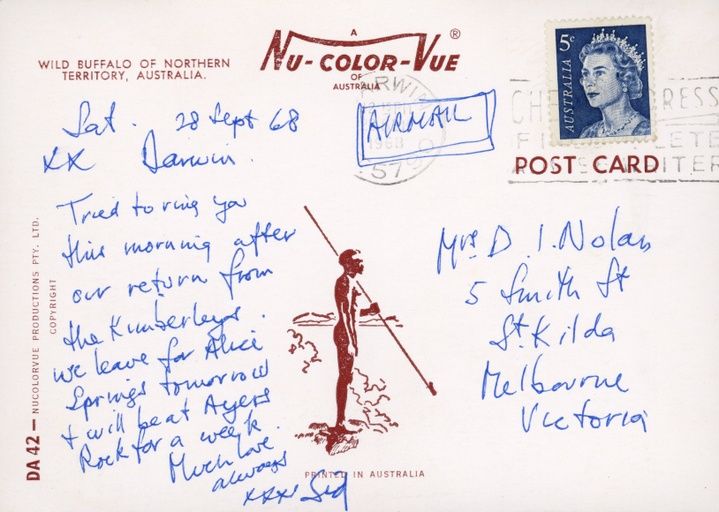 A
NU-COLOR-VUE ®
OF
AUSTRALIA
WILD BUFFALO OF NORTHERN
TERRITORY, AUSTRALIA.
Sat. 28 Sept 68
xx Darwin.
Tried to ring you
this morning after
our return from
the Kimberleys.
we leave for Alice
Springs tomorrow
+ will be at Ayers
Rock for a week.
Much love
always
xxxx Sid
AIRMAIL
5c
AUSTRALIA
1968
POST CARD
Mrs D. I. Nolan
5 Smith St
St. Kilda
Melbourne
Victoria
DA 42 — NUCOLORVUE PRODUCTIONS PTY. LTD.
COPYRIGHT
PRINTED IN AUSTRALIA